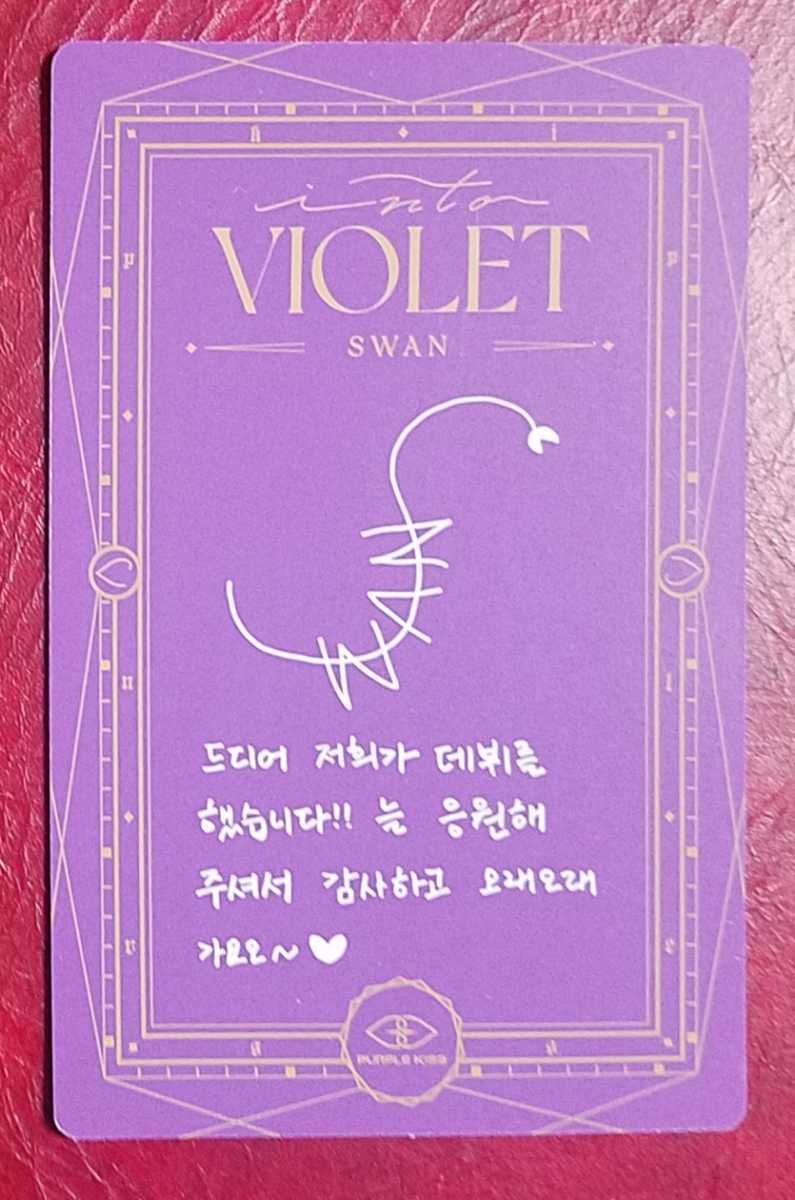 into
VIOLET
SWAN
드디어 저희가 데뷔를
했습니다!! 늘 응원해
주셔서 감사하고 오래오래
가요오~♥
PURPLE KISS